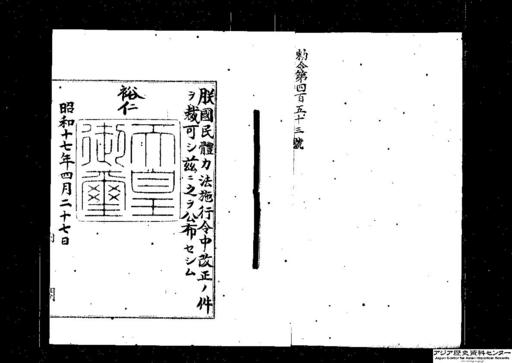 勅令第四百五十三號
朕國民體力法施行令中改正ノ件
ヲ裁可シ茲ニ之ヲ公布セシム
裕仁
天皇
御璽
昭和十七年四月二十七日
アジア歴史資料センター
Japan Center for Asian Historical Records